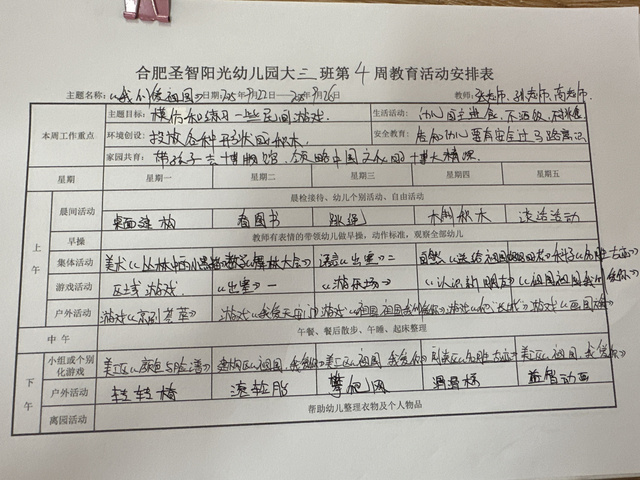 合肥圣智阳光幼儿园大三班第4周教育活动安排表
主题名称:《我们爱祖国》日期: 9月22日 9月26日 教师: 老师、孙老师、高老师.
本周工作重点 主题目标: 模仿和练习一些民间游戏. 生活活动: 幼儿自主进食、不洒饭、
环境创设: 投放各种形状的积木 安全教育: 幼儿要有安全过马路意识
家园共育: 带孩子去博物馆,领略中国文化的博大精深.
星期 星期一 星期二 星期三 星期四 星期五
上午 晨间活动 晨检接待、幼儿个别活动、自由活动
桌面建构 看图书 跳绳 木制积木 谈话活动
早操 教师有表情的带领幼儿做早操,动作标准,观察全部幼儿
集体活动 美术《丛林中 数学《 大会》 语言《出塞》二 自然《
游戏活动 区域游戏 《出塞》一 《游乐场》 《认识新朋友》
户外活动 游戏《 游戏《我爱天安门 游戏《祖国祖国我们爱你》 游戏《 游戏《
中午 午餐、餐后散步、午睡、起床整理
下午 小组或个别化游戏 美工区《颜色与脸谱》 建构区《祖国,我爱你》 美工区《祖国,我爱你》 美工区《祖国,我爱你》
户外活动 转转椅 滚轮胎 攀爬网 滑滑梯 益智动画
离园活动 帮助幼儿整理衣物及个人物品